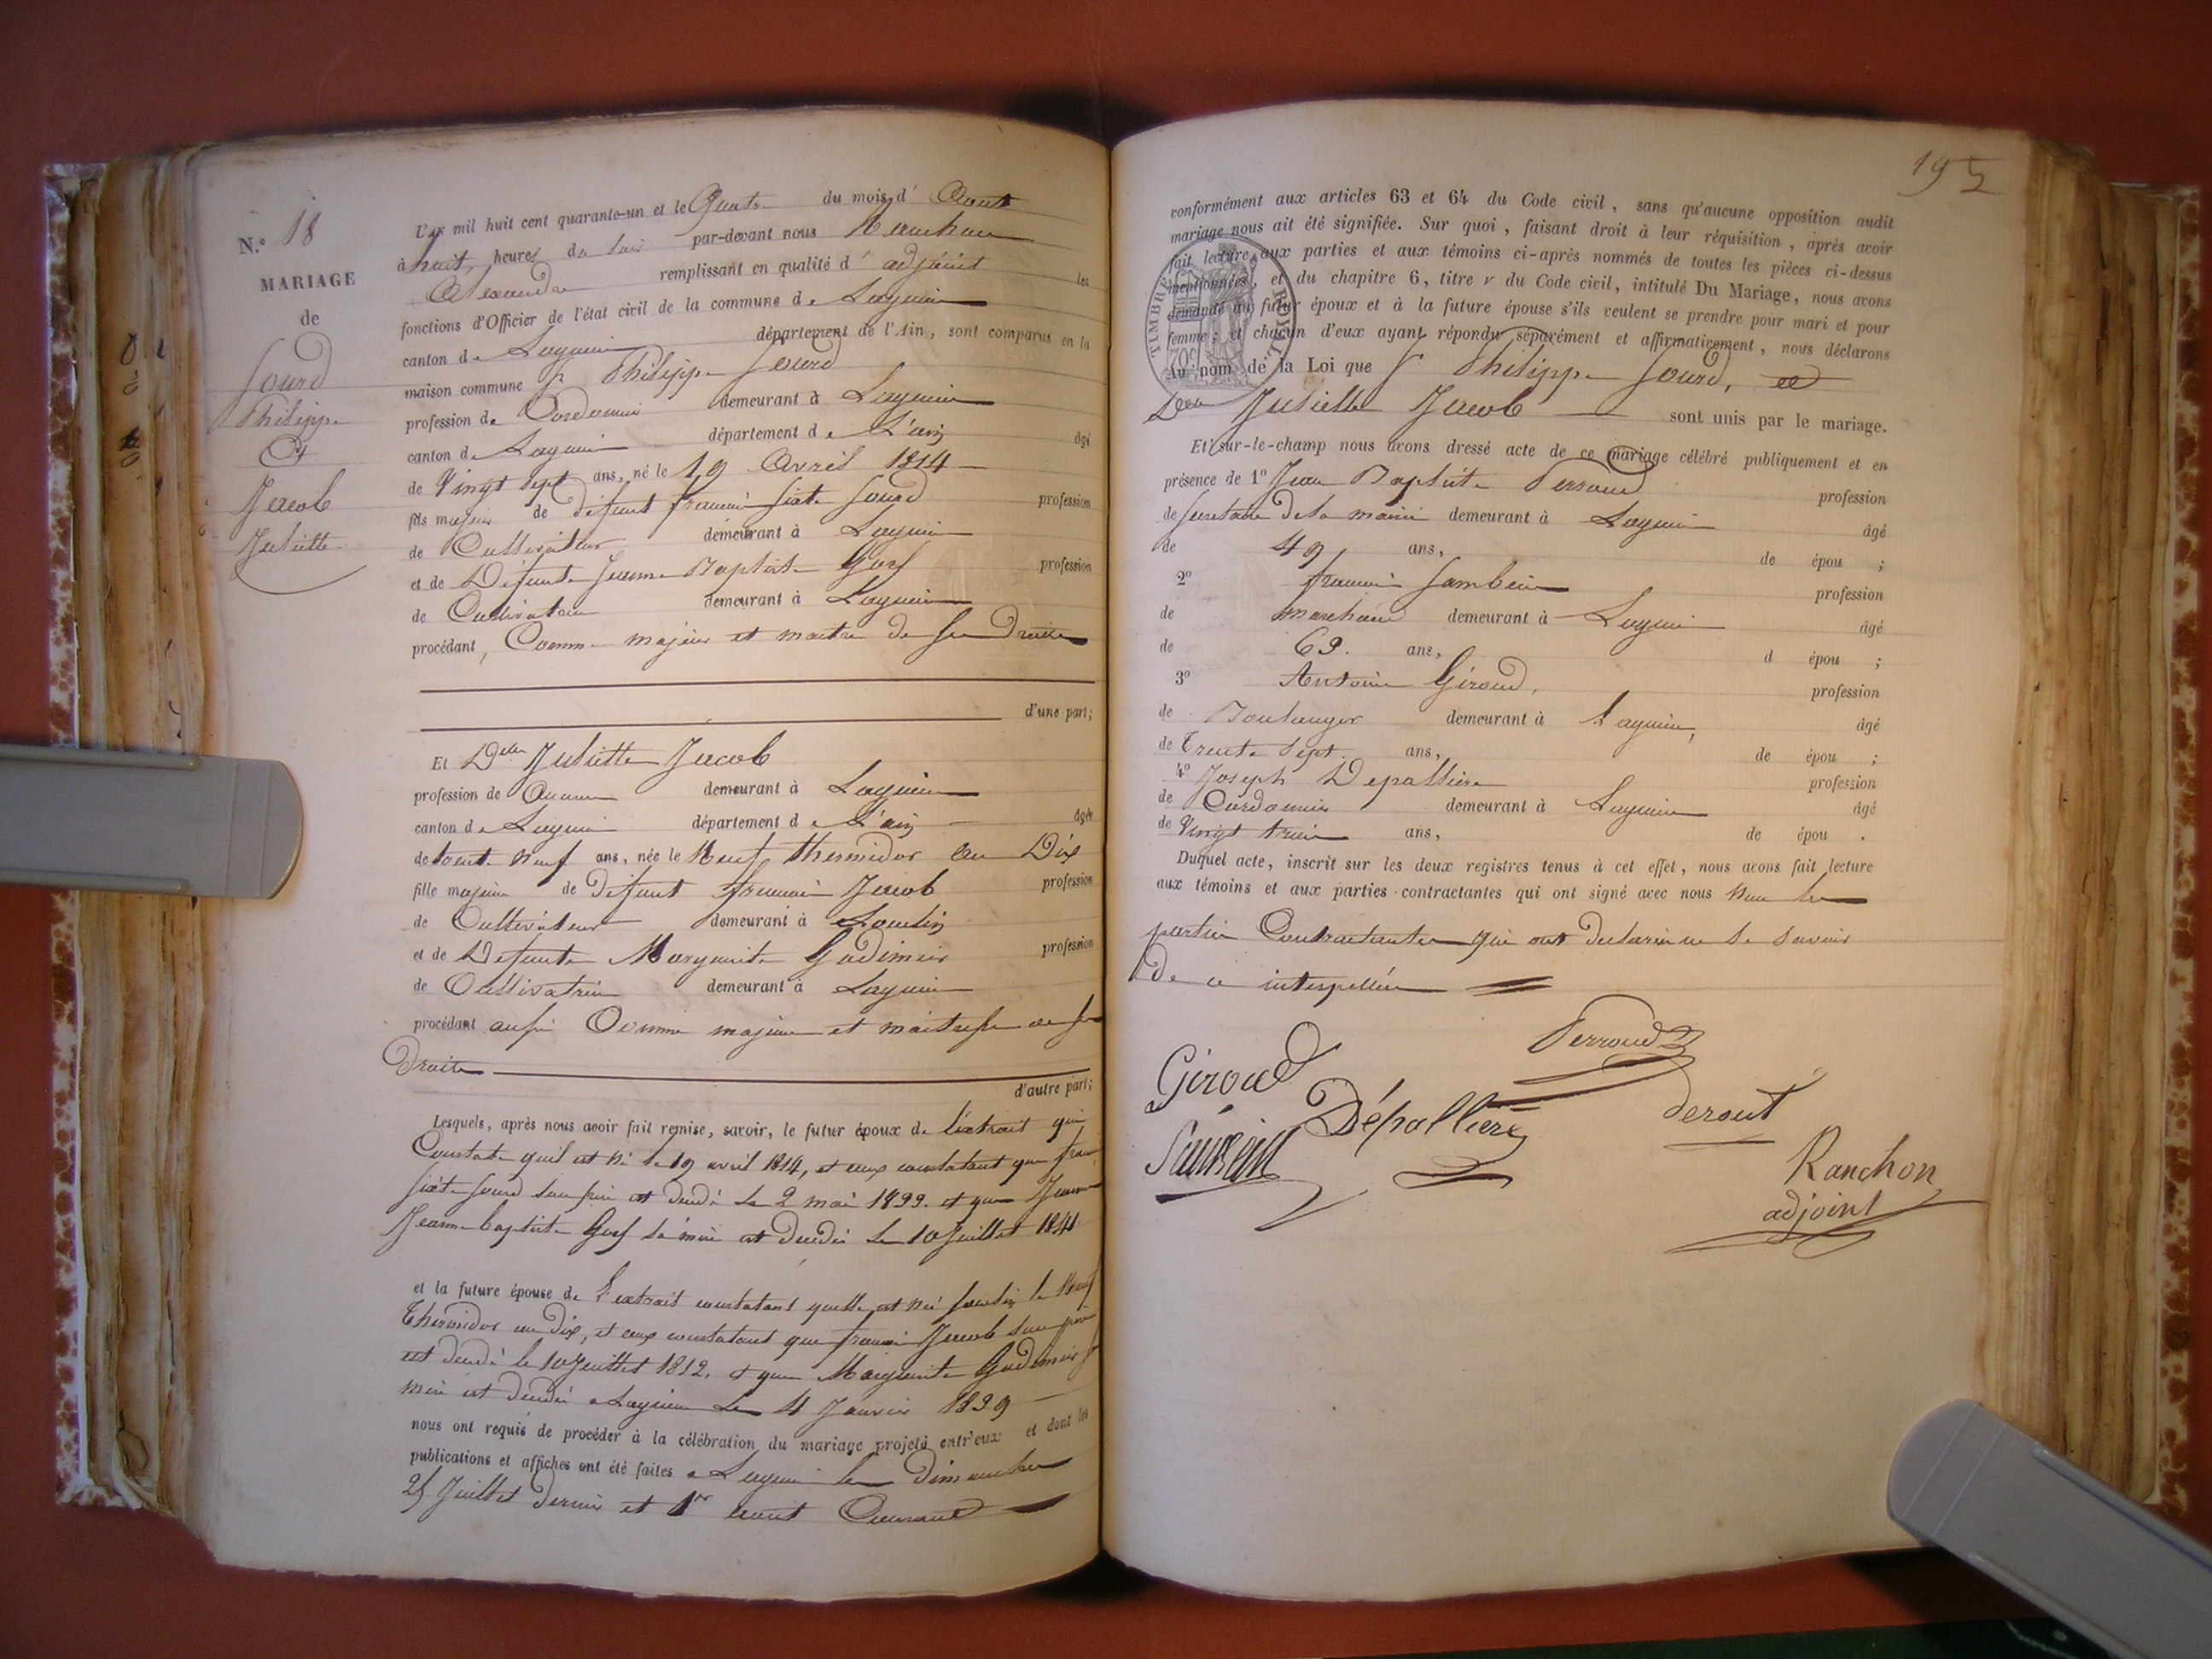 N.º 18
MARIAGE
de
Sourd
Philippe
Et
Jacob
Juliette
L'an mil huit cent quarante-un et le Quatre du mois d' Aout
à huit heures du soir par-devant nous Ranchon
Alexandre remplissant en qualité d' adjoint les
fonctions d'Officier de l'état civil de la commune de Lagnieu
canton de Lagnieu département de l'Ain, sont comparus en la
maison commune Sr Philippe Sourd
profession de Cordonnier demeurant à Lagnieu
canton de Lagnieu département de L'ain âgé
de Vingt sept ans, né le 19 Avril 1814
fils majeur de défunt francois Sixte Sourd profession
de Cultivateur demeurant à Lagnieu
et de Défunte Jeanne Baptiste profession
de Cultivateur demeurant à Lagnieu
procédant, Comme majeur et maitre de ses Droits
d'une part;
Et Delle Juliette Jacob
profession de demeurant à Lagnieu
canton de Lagnieu département de L'ain âgée
de trente neuf ans, née le Neuf thermidor an Dix
fille majeure de défunt francois Jacob profession
de Cultivateur demeurant à Souclin
et de Défunte Marguerite Gudimier profession
de Cultivatrice demeurant à Lagnieu
procédant aussi Comme majeure et maitresse de ses
Droits
d'autre part;
Lesquels, après nous avoir fait remise, savoir, le futur époux de l'extrait qui
Constate quil est né le 19 avril 1814, et ceux constatant que
Sixte Sourd son père est décédé le 2 mai et que
Jeanne baptiste sa mère est décédée le 10 Juillet
et la future épouse de l'extrait constatant quelle est née Souclin le Neuf
Thermidor an Dix, et ceux constatant que francois Jacob son père
est décédé le 10 Juillet 1812. et que Marguerite Gudimier sa
mère est décédée a Lagnieu le 4 Janvier 1839
nous ont requis de procéder à la célébration du mariage projeté entr'eux et dont les
publications et affiches ont été faites a Lagnieu les dimanches
25 Juillet dernier et 1er aout Courant
195
conformément aux articles 63 et 64 du Code civil, sans qu'aucune opposition audit
mariage nous ait été signifiée. Sur quoi, faisant droit à leur réquisition, après avoir
fait lecture aux parties et aux témoins ci-après nommés de toutes les pièces ci-dessus
mentionnées, et du chapitre 6, titre v du Code civil, intitulé Du Mariage, nous avons
demandé au futur époux et à la future épouse s'ils veulent se prendre pour mari et pour
femme; et chacun d'eux ayant répondu séparément et affirmativement, nous déclarons
Au nom de la Loi que Sr Philippe Sourd, et
TIMBRE ROYAL
70c
Delle Juliette Jacob sont unis par le mariage.
Et sur-le-champ nous avons dressé acte de ce mariage célébré publiquement et en
présence de 1º Jean Baptiste Perroud profession
de secretaire de la mairie demeurant à Lagnieu âgé
de 49 ans, de épou ;
2º francois Sambein profession
de marchand demeurant à Lagnieu âgé
de 63. ans, d épou ;
3º Antoine Giroud, profession
de Boulanger demeurant à Lagnieu, âgé
de Trente Sept ans, de épou ;
4º Joseph Depalliere profession
de Cordonnier demeurant à Lagnieu âgé
de Vingt trois ans, de épou .
Duquel acte, inscrit sur les deux registres tenus à cet effet, nous avons fait lecture
aux témoins et aux parties contractantes qui ont signé avec nous Non les
parties Contractantes qui ont declarées ne le savoir
De ce interpellées
Perroud
Giroud
Dépallière
derout
Ranchon
adjoint